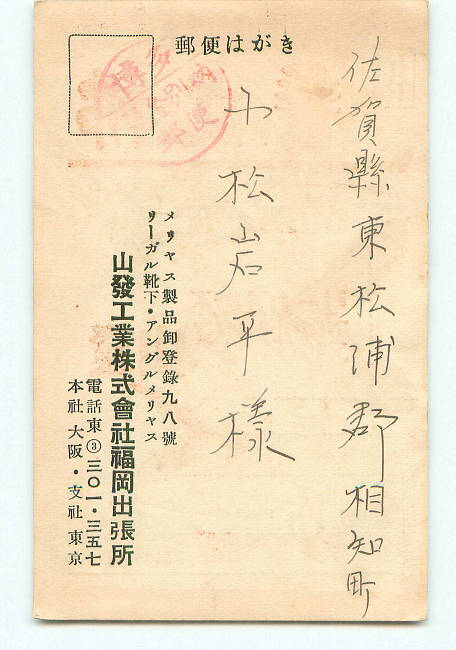 郵便はがき
佐賀縣東松浦郡相知町
小松岩平様
博多
別納
郵便
メリヤス製品卸登錄九八號
リーガル靴下・アングルメリヤス
山發工業株式會社福岡出張所
電話東③三〇一・三五七
本社 大阪・支社 東京